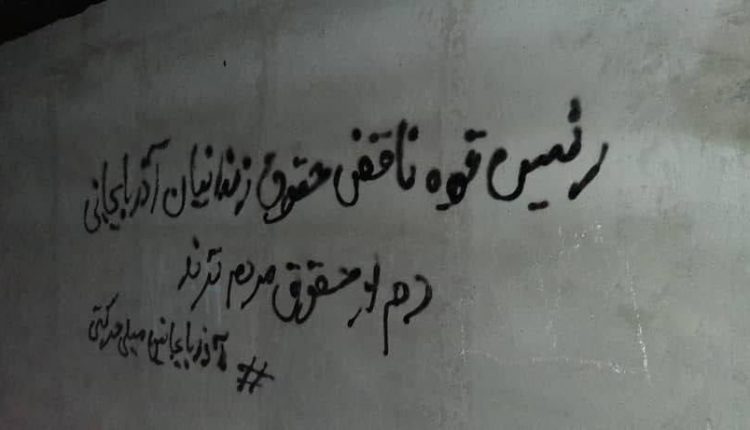 رئیس قوه ناقض حقوق زندانیان آذربایجانی
دم از حقوق مردم نزند
#آذربایجانین میلی حرکتی